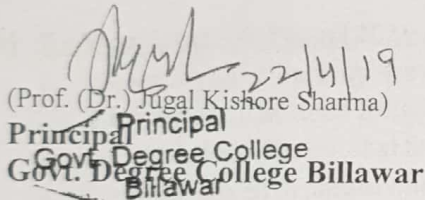 22/4/19
(Prof. (Dr.) Jugal Kishore Sharma)
Principal
Principal
Govt. Degree College
Govt. Degree College Billawar
Billawar